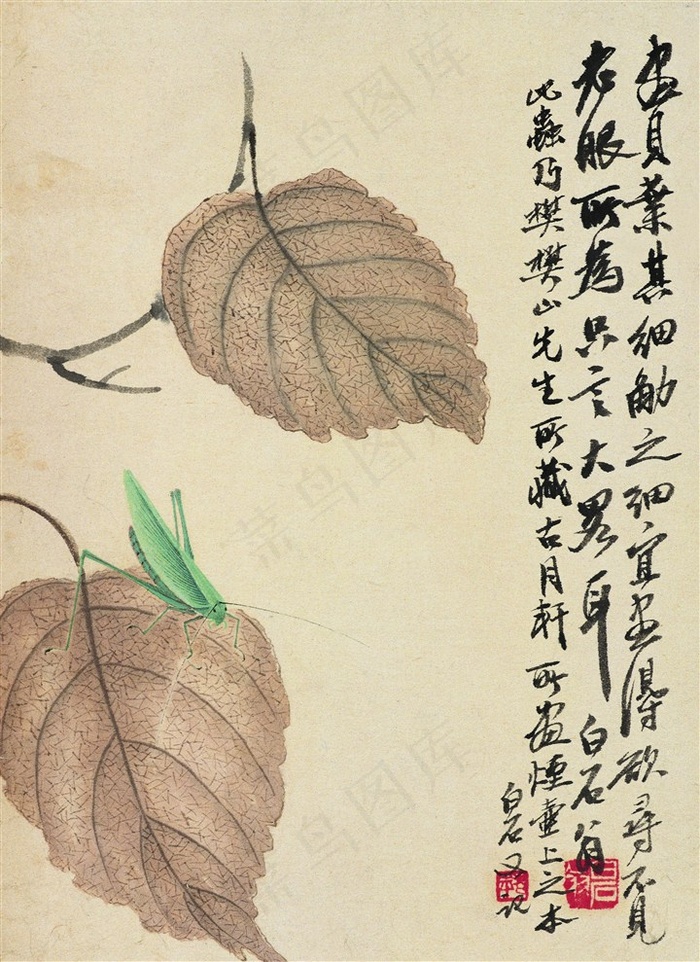 畫貝葉其細觔之細宜畫得欲尋不見
老眼所為只言大畧耳 白石翁
此蟲乃樊樊山先生所藏古月軒所畫煙壺上之本
白石又記
白石翁
菜鸟图库